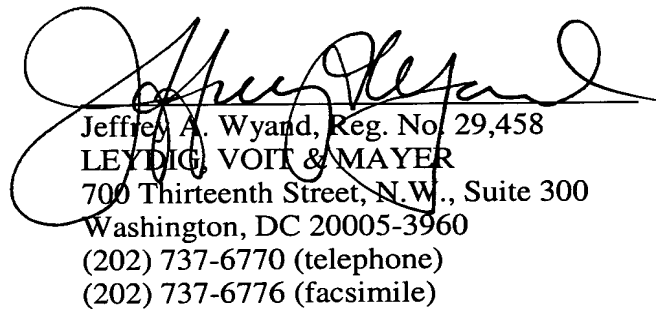 Jeffrey A. Wyand
Jeffrey A. Wyand, Reg. No. 29,458
LEYDIG, VOIT & MAYER
700 Thirteenth Street, N.W., Suite 300
Washington, DC 20005-3960
(202) 737-6770 (telephone)
(202) 737-6776 (facsimile)